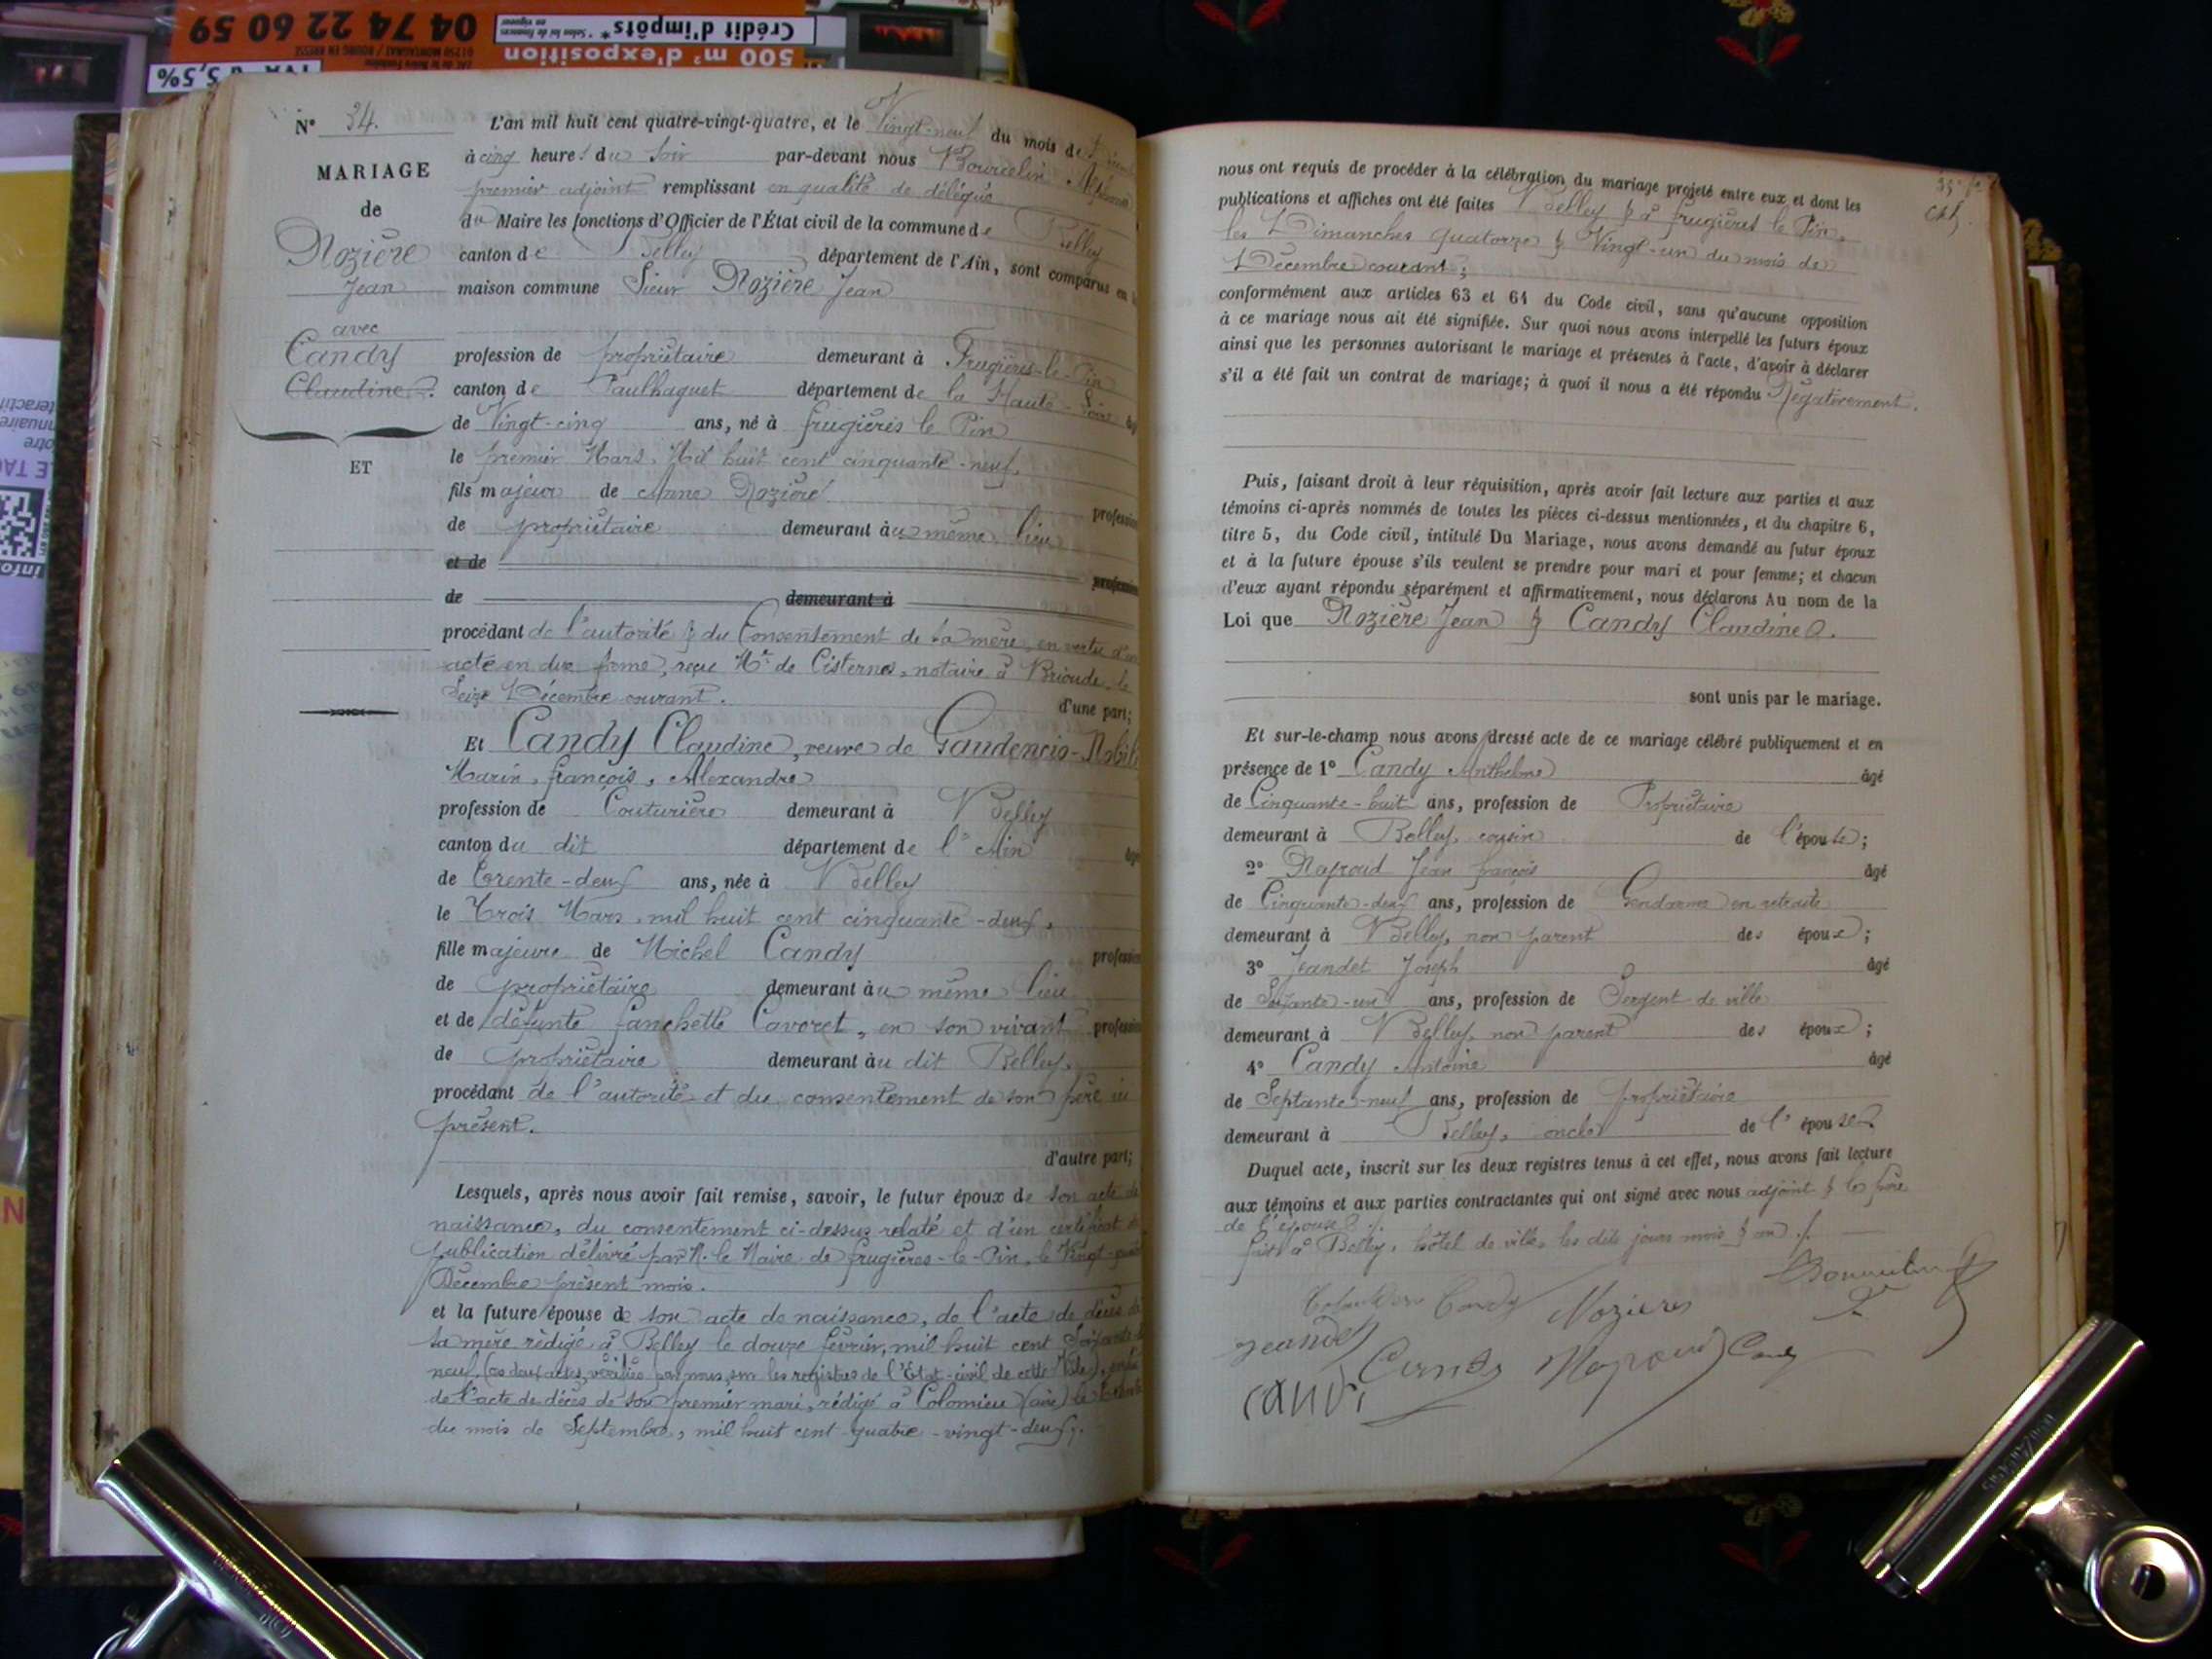 04 74 22 60 59
Crédit d'impôts*
500 m² d'exposition
N° 34.
MARIAGE
de
Nozière
Jean
avec
Candy
Claudine
ET
L'an mil huit cent quatre-vingt-quatre, et le Vingt-neuf du mois de
à cinq heures du soir par-devant nous Bourcelin
premier adjoint remplissant en qualité de délégué
du Maire les fonctions d'Officier de l'État civil de la commune de Belley
canton de Belley département de l'Ain, sont comparus en la
maison commune Sieur Nozière Jean
profession de propriétaire demeurant à Frugières-le-Pin
canton de Paulhaguet département de la Haute-Loire âgé
de Vingt-cinq ans, né à frugières le Pin
le premier Mars, Mil huit cent cinquante-neuf,
fils majeur de Anne Nozière profession
de propriétaire demeurant au même lieu
et de profession
de demeurant à
procédant de l'autorité & du Consentement de sa mère, en vertu d'un
acte en due forme, reçu Me de Cisternes, notaire à Brioude, le
Seize Décembre courant. d'une part;
Et Candy Claudine, veuve de Gaudencio-Nobili
Marin, françois, Alexandre
profession de Couturière demeurant à Belley
canton du dit département de l'Ain âgée
de Trente-deux ans, née à Belley
le Trois Mars, mil huit cent cinquante-deux,
fille majeure de Michel Candy profession
de propriétaire demeurant au même lieu
et de défunte fanchette Cavoret, en son vivant profession
de propriétaire demeurant au dit Belley,
procédant de l'autorité et du consentement de son père ici
présent.
d'autre part;
Lesquels, après nous avoir fait remise, savoir, le futur époux de son acte de
naissance, du consentement ci-dessus relaté et d'un certificat de
publication délivré par M. le Maire de frugières-le-Pin, le Vingt-
Décembre présent mois.
et la future épouse de son acte de naissance, de l'acte de décès de
sa mère rédigé à Belley le douze février, mil huit cent Soixante-
neuf, (ces deux actes vérifiés par nous, sur les registres de l'Etat-civil de cette Ville), enfin
de l'acte de décès de son premier mari, rédigé à Colomieu (ain) le
du mois de Septembre, mil huit cent quatre-vingt-deux,.
nous ont requis de procéder à la célébration du mariage projeté entre eux et dont les
publications et affiches ont été faites Belley & à frugières le Pin,
les Dimanches quatorze & Vingt-un du mois de
Décembre courant;
conformément aux articles 63 et 64 du Code civil, sans qu'aucune opposition
à ce mariage nous ait été signifiée. Sur quoi nous avons interpellé les futurs époux
ainsi que les personnes autorisant le mariage et présentes à l'acte, d'avoir à déclarer
s'il a été fait un contrat de mariage; à quoi il nous a été répondu Négativement.
Puis, faisant droit à leur réquisition, après avoir fait lecture aux parties et aux
témoins ci-après nommés de toutes les pièces ci-dessus mentionnées, et du chapitre 6,
titre 5, du Code civil, intitulé Du Mariage, nous avons demandé au futur époux
et à la future épouse s'ils veulent se prendre pour mari et pour femme; et chacun
d'eux ayant répondu séparément et affirmativement, nous déclarons Au nom de la
Loi que Nozière Jean & Candy Claudine
sont unis par le mariage.
Et sur-le-champ nous avons dressé acte de ce mariage célébré publiquement et en
présence de 1° Candy Anthelme âgé
de Cinquante-huit ans, profession de Propriétaire
demeurant à Belley, cousin de l'épouse;
2° Nayroud Jean françois âgé
de Cinquante-deux ans, profession de Gendarme en retraite
demeurant à Belley, non parent des époux;
3° Jeandet Joseph âgé
de Soixante-un ans, profession de Sergent de ville
demeurant à Belley, non parent des époux;
4° Candy Antoine âgé
de Septante-neuf ans, profession de propriétaire
demeurant à Belley, oncle de l'épouse
Duquel acte, inscrit sur les deux registres tenus à cet effet, nous avons fait lecture
aux témoins et aux parties contractantes qui ont signé avec nous adjoint & le père
de l'épouse ./.
fait à Belley, hôtel de ville, les dits jours mois & an ./.
Candy Nozières
Jeandet
Candy